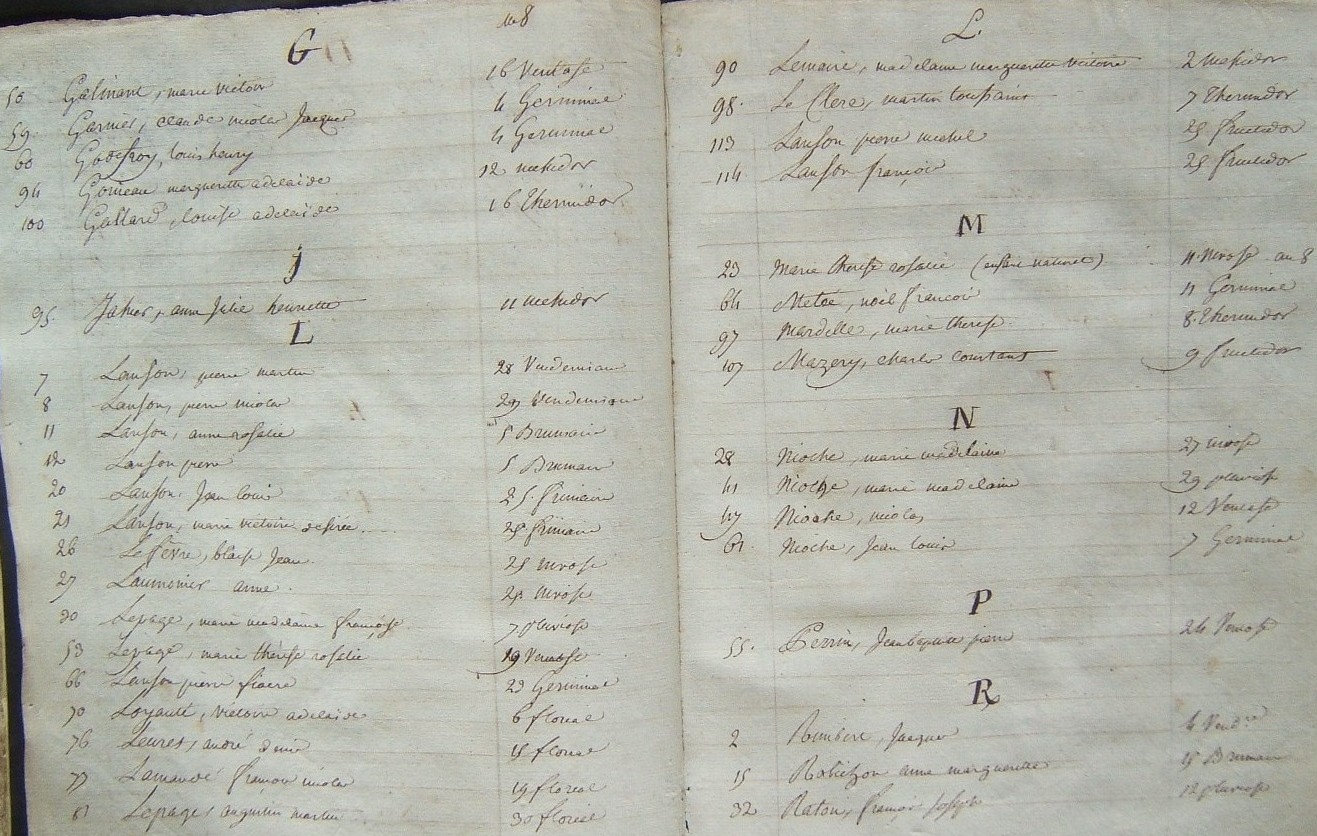 an 8
G
50 Galinant, marie victoire 16 Ventose
59. Garnier, claude nicolas Jacques 4 Germinal
60 Godefroy, louis henry 4 Germinal
94 Goineau marguerite adelaïde 12 messidor
100 Gallard, louise adelaïde 16 Thermidor
J
95 Jahier, anne Julie henriette 11 messidor
L
7 Lanson, pierre martin 28 Vendemiaire
8 Lanson, pierre nicolas 29 Vendemiaire
11 Lanson, anne rosalie 5 Brumaire
12 Lanson pierre 5 Brumaire
20 Lanson, Jean louis 25 frimaire
21 Lanson, marie victoire desirée 25 frimaire
26 Le fèvre, blaise Jean. 25 nivose
27 Laumonier anne. 25 nivose
30 Lepage, marie madelaine françoise 7 pluviose
53 Lepage, marie thérese rosalie 19 Ventose
66 Lanson pierre fiacre 23 Germinal
70 Loyauté, Victoire adelaïde 6 floreal
76 Leuret, andré denis 15 floreal
77 françois nicolas 19 floreal
81 Lepage, augustin martin 30 floreal
L.
90 Lemaire, madelaine marguerite victoire 2 messidor
98. Le Clerc, martin toussaint 7 Thermidor
113 Lanson pierre michel 25 fructidor
114 Lanson françois 25 fructidor
M
23 Marie therese rosalie (enfant naturel) 11 nivose an 8
64 noël francois 11 Germinal
97 Mardelle, marie therese. 8 Thermidor
107 Mazery, charles constant 9 fructidor
N
28 Nioche, marie madelaine 27 nivose
41 Nioche, marie madelaine 29 pluviose
47 Nioche, nicolas 12 Ventose
61. Nioche, Jean louis 7 Germinal
P
55. Perrin, Jean baptiste pierre 24 Ventose
R
2 Jacques 4 Vend.re
15 anne marguerite 15 Brumaire
32 Raton, françois Joseph 12 pluviose